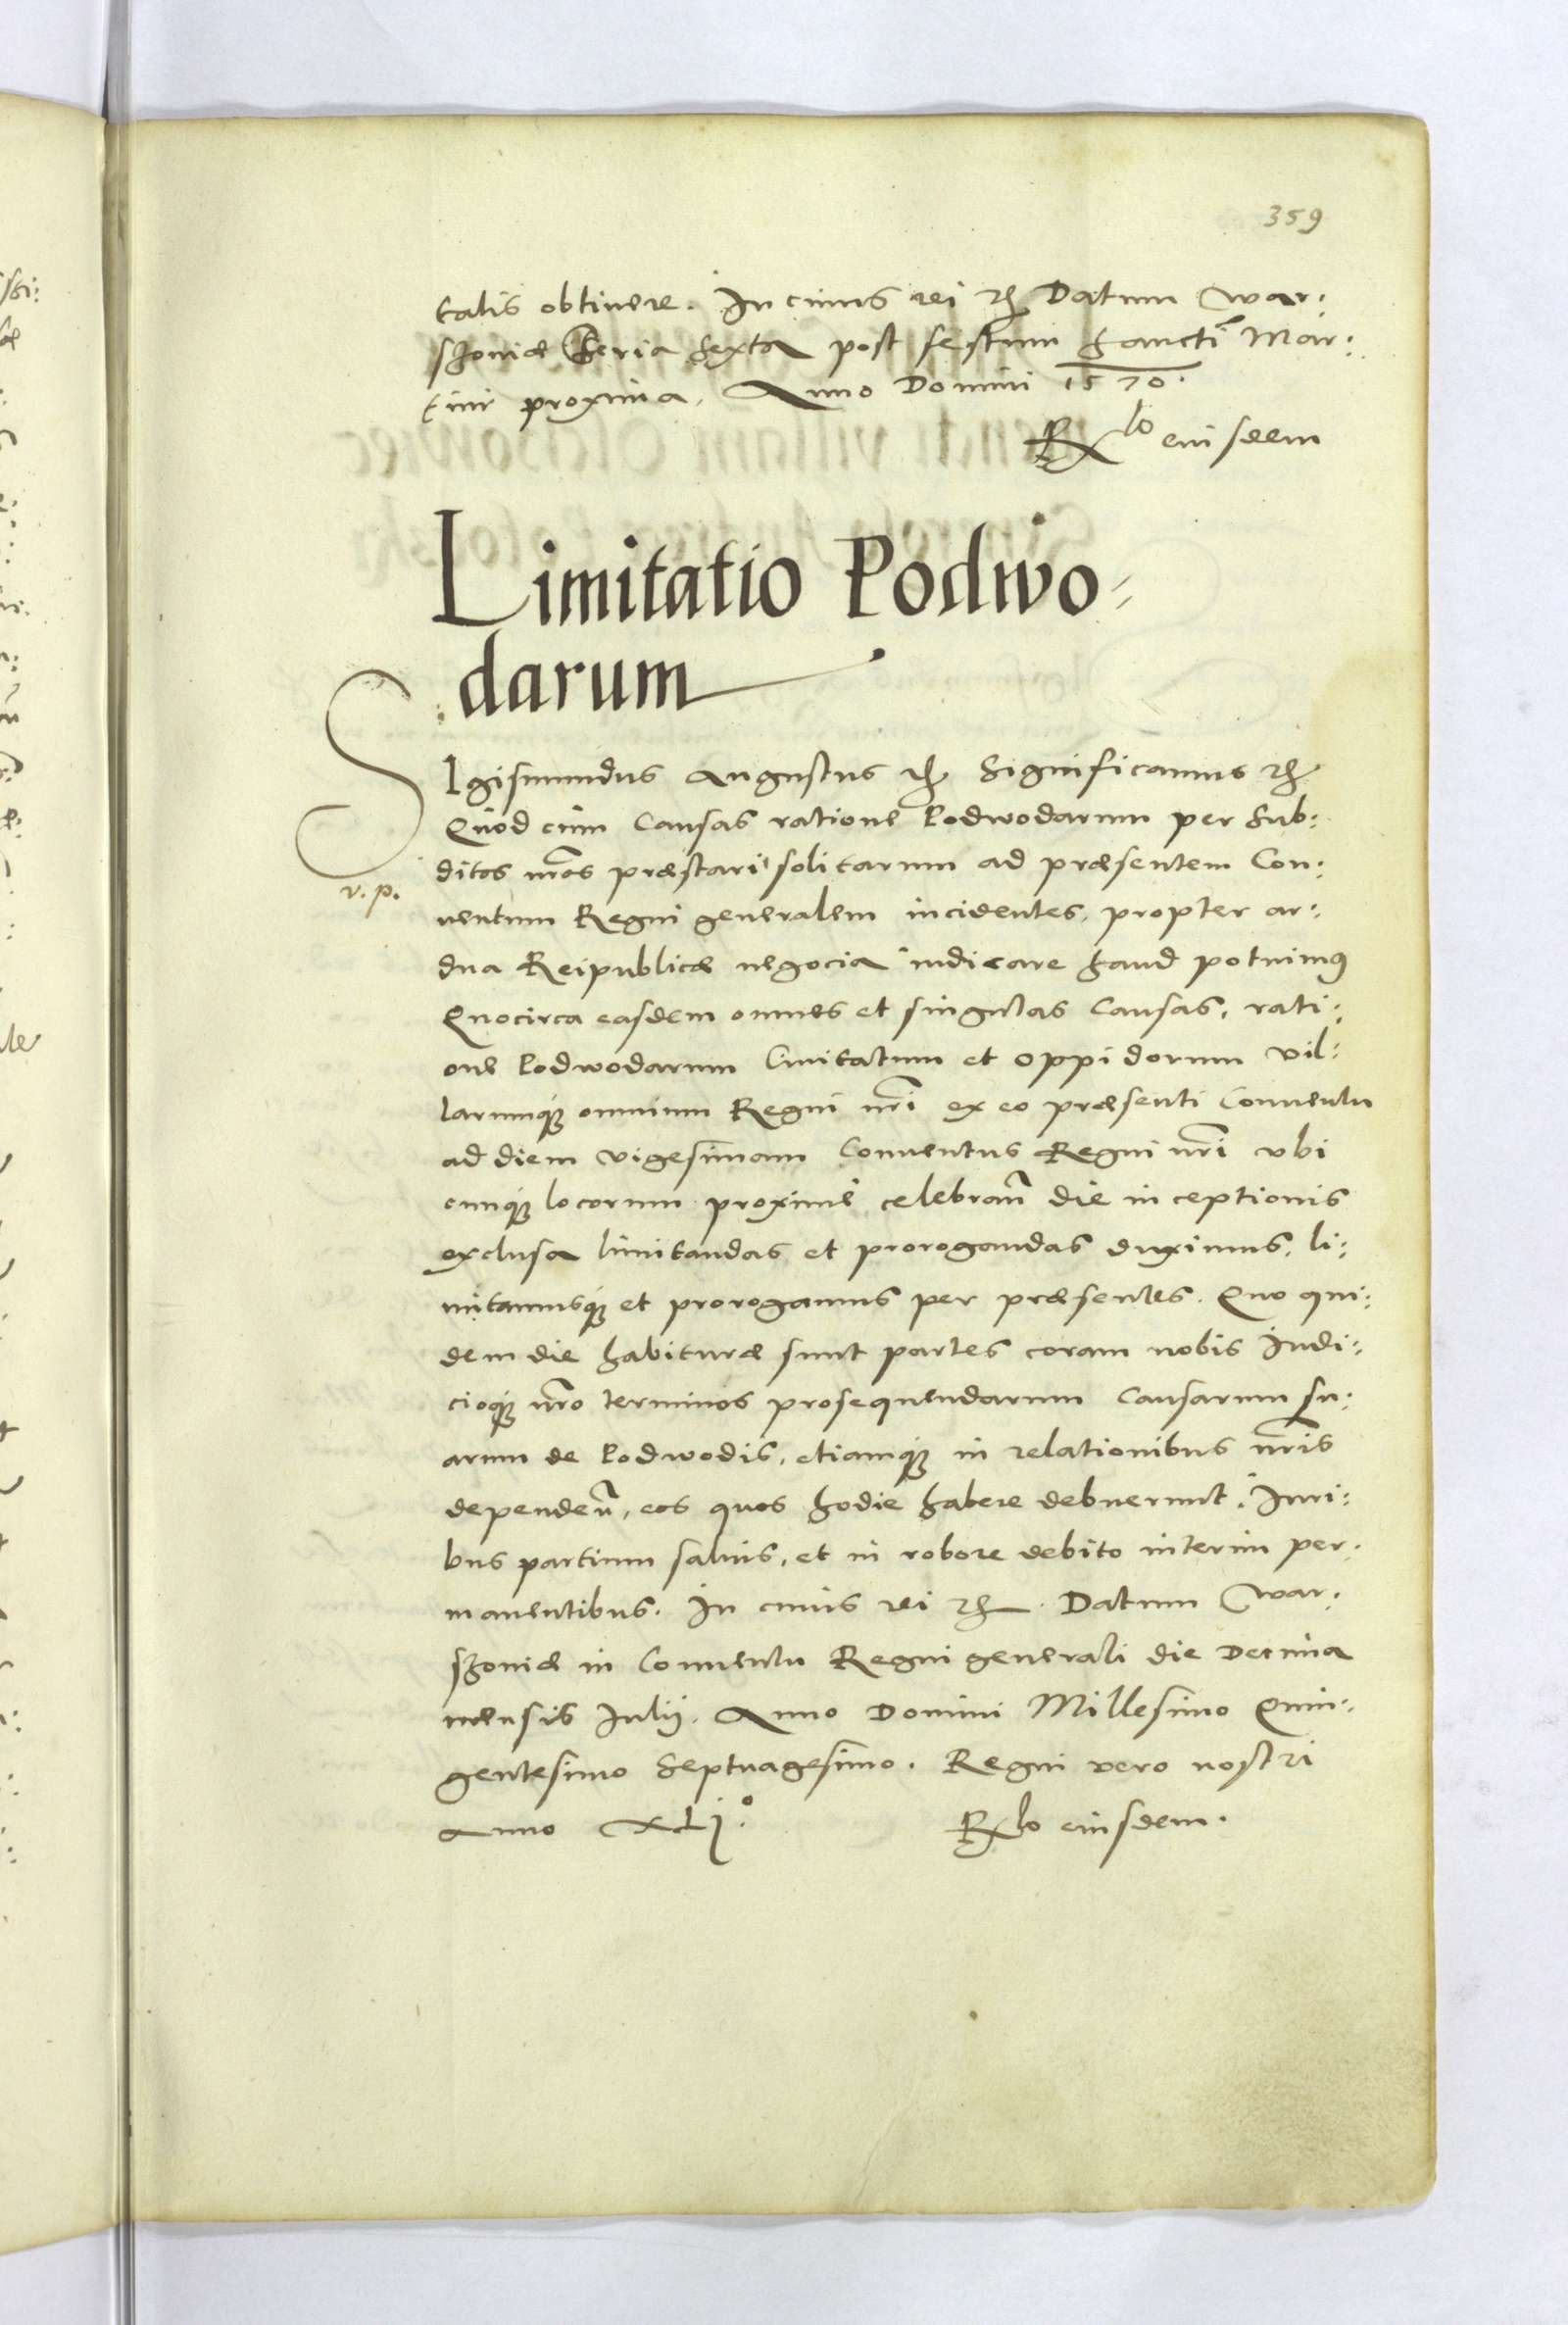 359
talis obtinere. In cuius rei etc Datum War:
szoviæ Feria sexta post festum Sancti Mar:
tini proxima. Anno Domini 1570.
R<sup>lo</sup> eiusdem
Limitatio Podwo-
darum
SIgismundus Augustus etc Significamus etc
Quod cùm Causas ratione Podwodarum per Sub:
ditos nros præstari solitarum ad præsentem Con:
v. p.
uentum Regni generalem incidentes, propter ar:
dua Reipublicæ negocia iudicare haud potuimus
Quocirca easdem omnes et singulas Causas, rati:
one Podwodarum Ciuitatum et oppidorum vil:
larumque omnium Regni nri ex eo præsenti Conuentu
ad diem vigesimam Conuentus Regni nri vbi
cunque locorum proximè celebran die inceptionis
exclusa limitandas et prorogandas duximus, li:
mitamusque et prorogamus per præsentes. Quo qui:
dem die habituræ sunt partes coram nobis Iudi:
cioque nro terminos prosequendarum Causarum su:
arum de Podwodis, etiamque in relationibus nris
depen­den, eos quos hodie habere debuerunt. Iuri:
bus partium saluis, et in robore debito interim per:
manentibus. In cuius rei etc. Datum War:
szoviæ in Conuentu Regni generali die Decima
mensis Iulij. Anno Domini Millesimo Quin:
gentesimo Septuagesimo. Regni vero nostri
Anno XLj.° Rlo eiusdem.